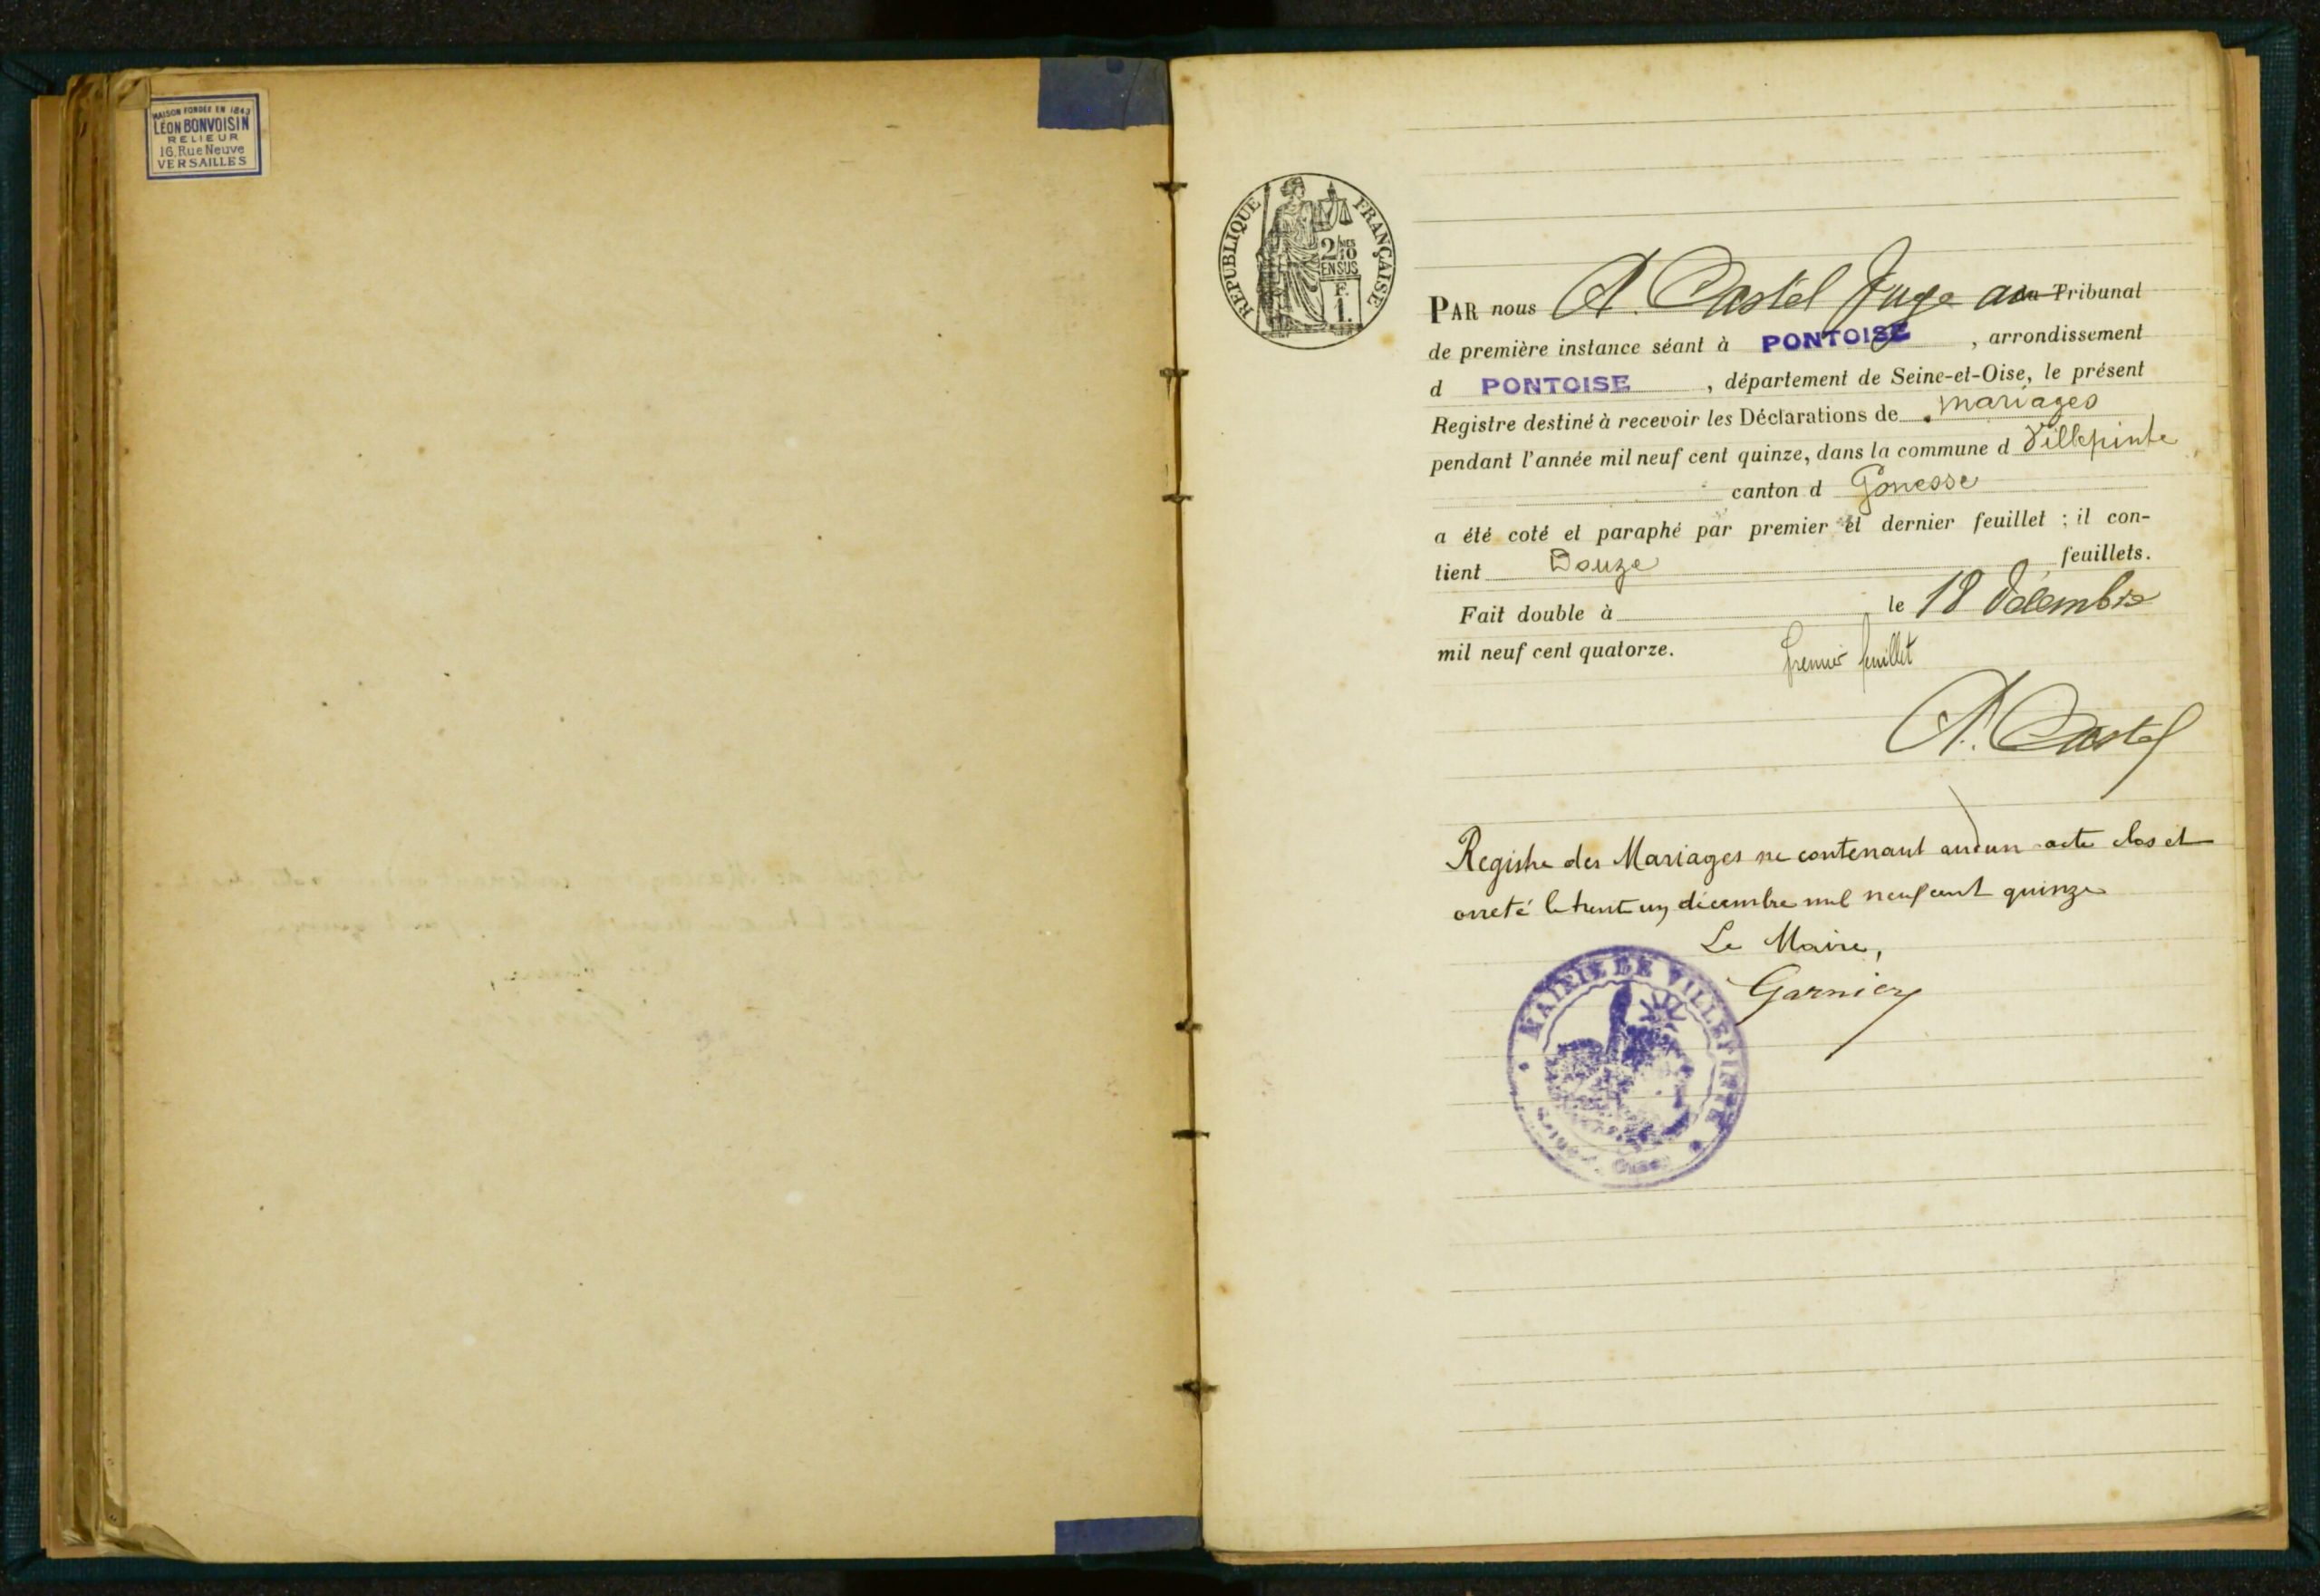 MAISON FONDÉE EN 1843
LÉON BONVOISIN
RELIEUR
16, Rue Neuve
VERSAILLES
RÉPUBLIQUE FRANÇAISE
2/10
EN SUS
F.
1.
PAR nous A. Castel Juge au Tribunal
de première instance séant à PONTOISE, arrondissement
d PONTOISE, département de Seine-et-Oise, le présent
Registre destiné à recevoir les Déclarations de mariages
pendant l'année mil neuf cent quinze, dans la commune d Villepinte
canton d Gonesse
a été coté et paraphé par premier et dernier feuillet ; il con-
tient Douze feuillets.
Fait double à le 18 Décembre
mil neuf cent quatorze.
premier feuillet
A. Castel
Registre des Mariages ne contenant aucun acte clos et
arreté le trente un décembre mil neuf cent quinze
Le Maire,
Garnier
MAIRIE DE VILLEPINTE